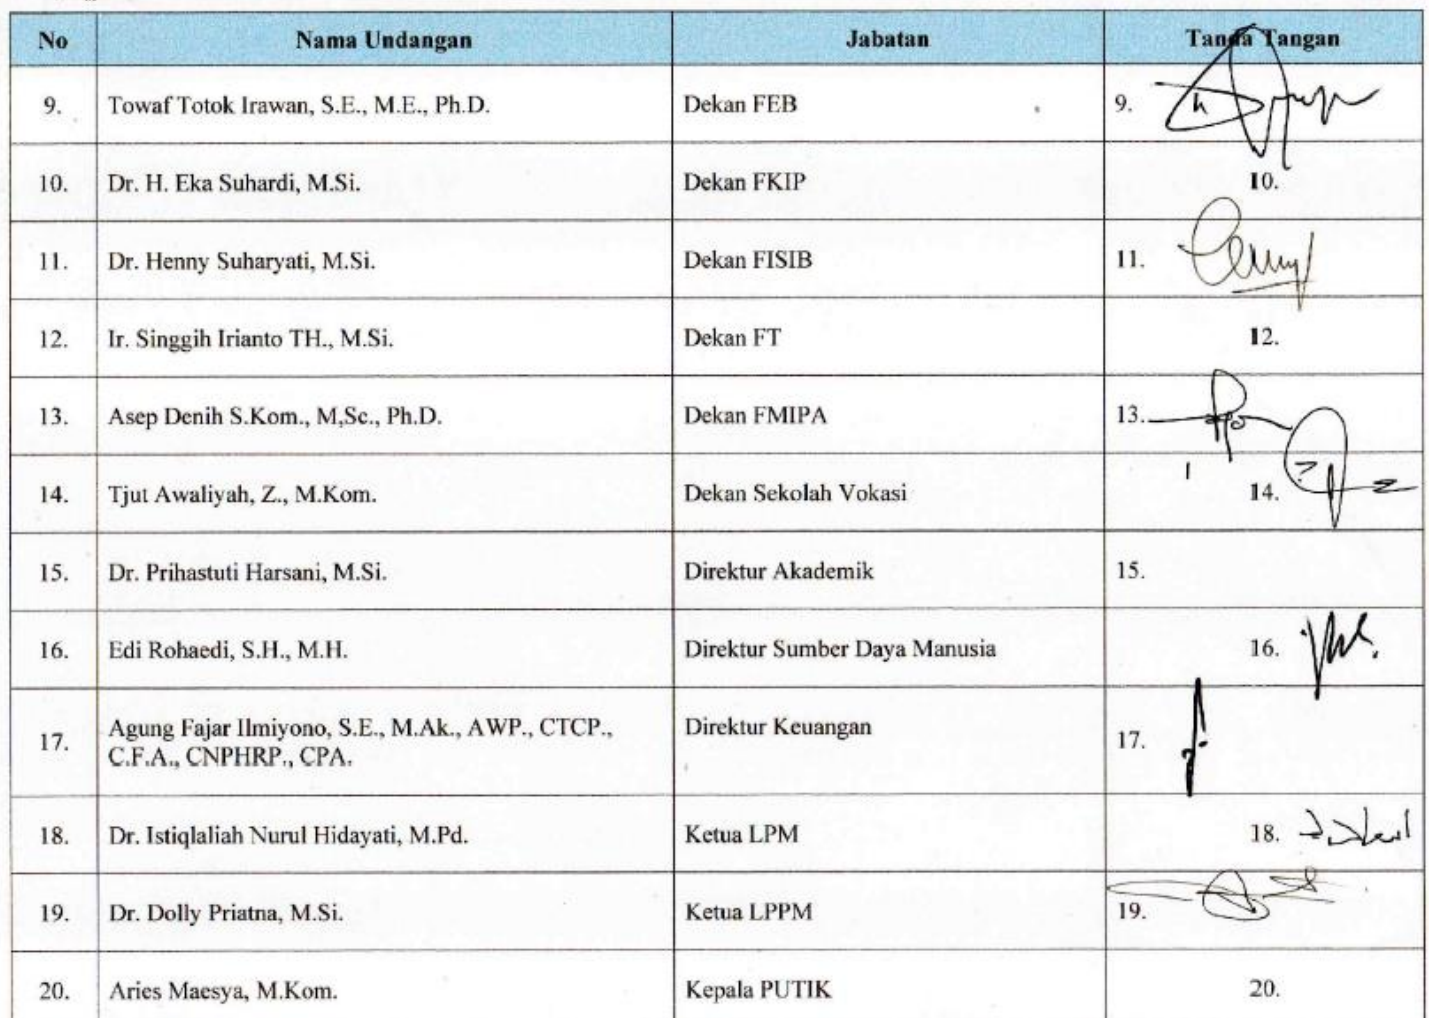 No Nama Undangan Jabatan Tanda Tangan
9. Towaf Totok Irawan, S.E., M.E., Ph.D. Dekan FEB 9.
10. Dr. H. Eka Suhardi, M.Si. Dekan FKIP 10.
11. Dr. Henny Suharyati, M.Si. Dekan FISIB 11.
12. Ir. Singgih Irianto TH., M.Si. Dekan FT 12.
13. Asep Denih S.Kom., M,Sc., Ph.D. Dekan FMIPA 13.
14. Tjut Awaliyah, Z., M.Kom. Dekan Sekolah Vokasi 14.
15. Dr. Prihastuti Harsani, M.Si. Direktur Akademik 15.
16. Edi Rohaedi, S.H., M.H. Direktur Sumber Daya Manusia 16.
17. Agung Fajar Ilmiyono, S.E., M.Ak., AWP., CTCP., Direktur Keuangan 17.
C.F.A., CNPHRP., CPA.
18. Dr. Istiqlaliah Nurul Hidayati, M.Pd. Ketua LPM 18.
19. Dr. Dolly Priatna, M.Si. Ketua LPPM 19.
20. Aries Maesya, M.Kom. Kepala PUTIK 20.